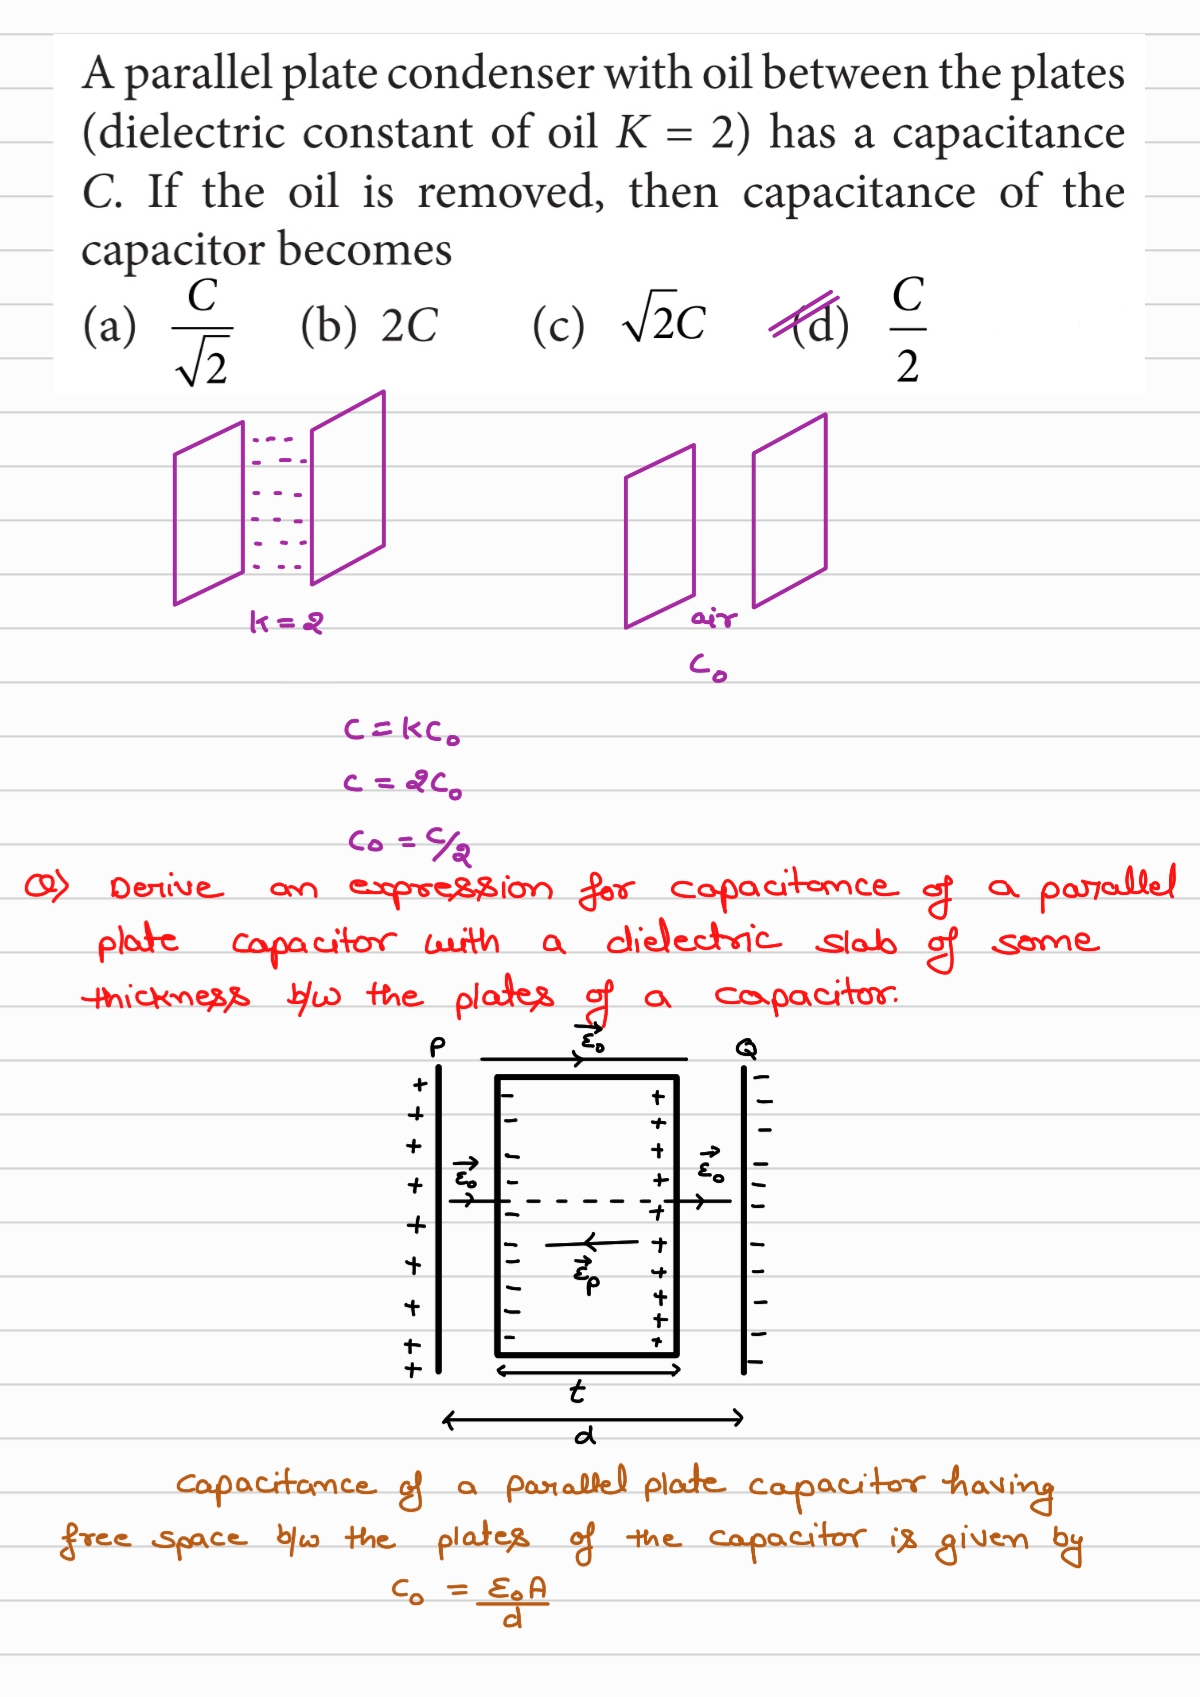 A parallel plate condenser with oil between the plates
(dielectric constant of oil K = 2) has a capacitance
C. If the oil is removed, then capacitance of the
capacitor becomes
(a) C/√2 (b) 2C (c) √2C (d) C/2
k = 2
air
C₀
C = kC₀
C = 2C₀
C₀ = C/2
Q) Derive an expression for capacitance of a parallel
plate capacitor with a dielectric slab of some
thickness b/w the plates of a capacitor.
P E₀ Q
E₀ E₀
Eₚ
t
d
Capacitance of a parallel plate capacitor having
free space b/w the plates of the capacitor is given by
C₀ = ε₀A/d